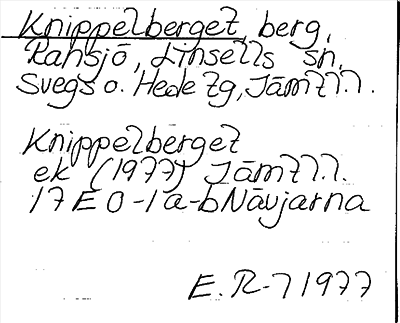 Knippelberget, berg,
Ransjö, Linsells sn,
Svegs o. Hede tg, Jämtl.l.
Knippelberget
ek (1977) Jämtl.l.
17E 0-1a-b Nävjarna
E. R-7 1977